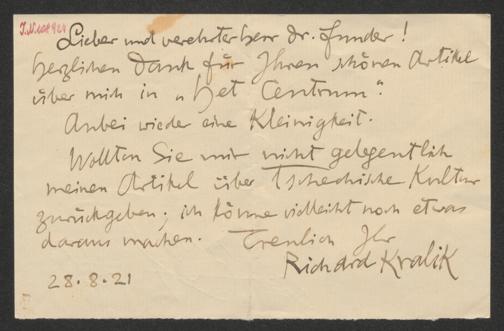 Lieber und verehrter Herr Dr. Funder!
Herzlichen Dank für Ihren schönen Artikel
über mich in „Het Centrum".
Anbei wieder eine Kleinigkeit.
Wollten Sie mir nicht gelegentlich
meinen Artikel über Tschechische Kultur
zurückgeben; ich könne vielleicht noch etwas
daraus machen. Treulich Ihr
Richard Kralik
28.8.21